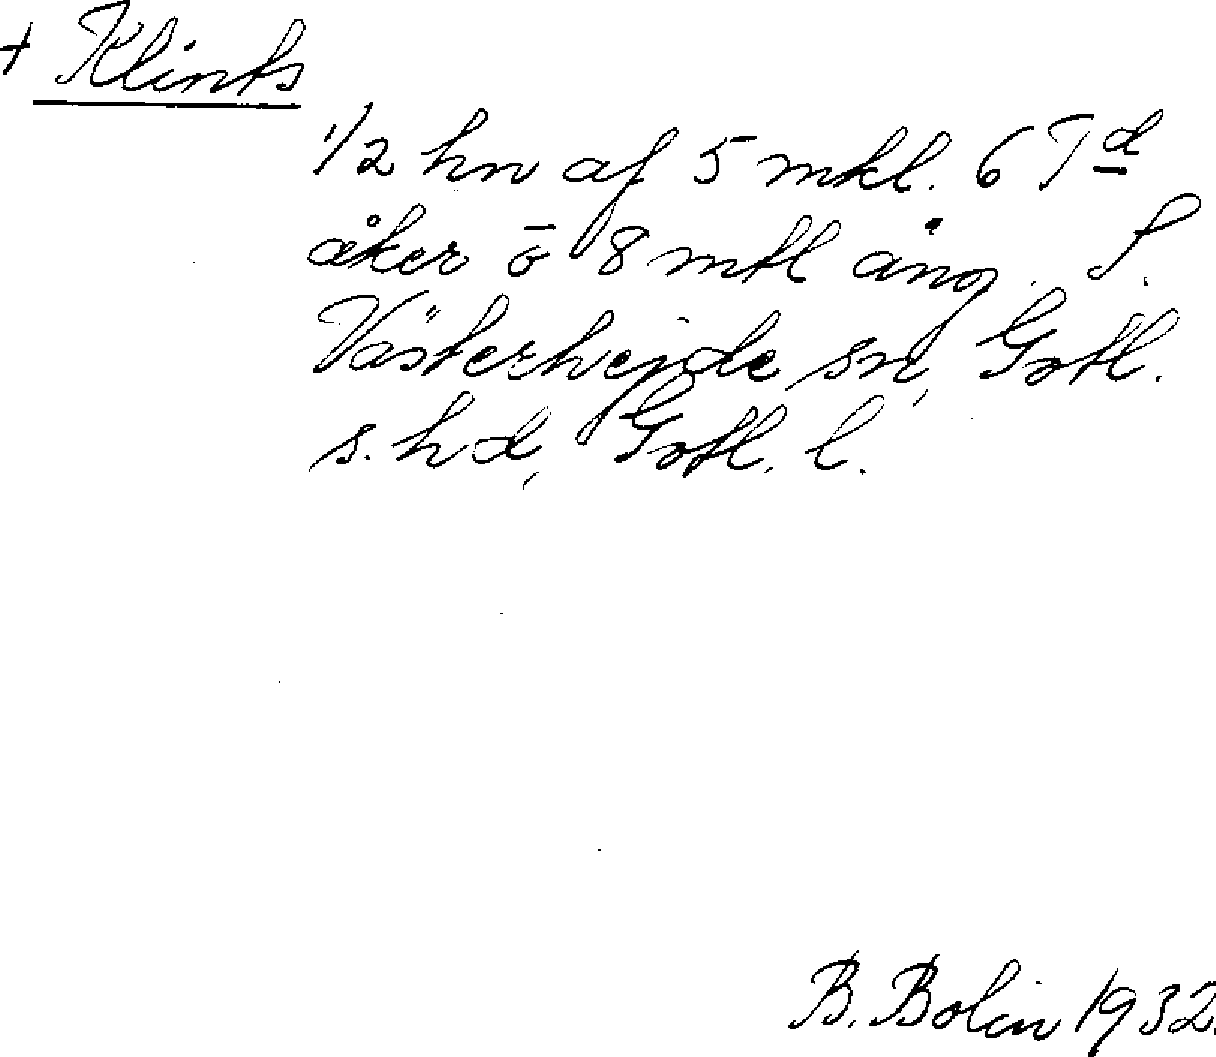 + Klints
1/2 hn af 5 mkl. 6 Td
åker ō 8 mkl äng. S.
Västerhejde sn, Gotl.
s. hd, Gotl. l.
B. Bolin 1932.